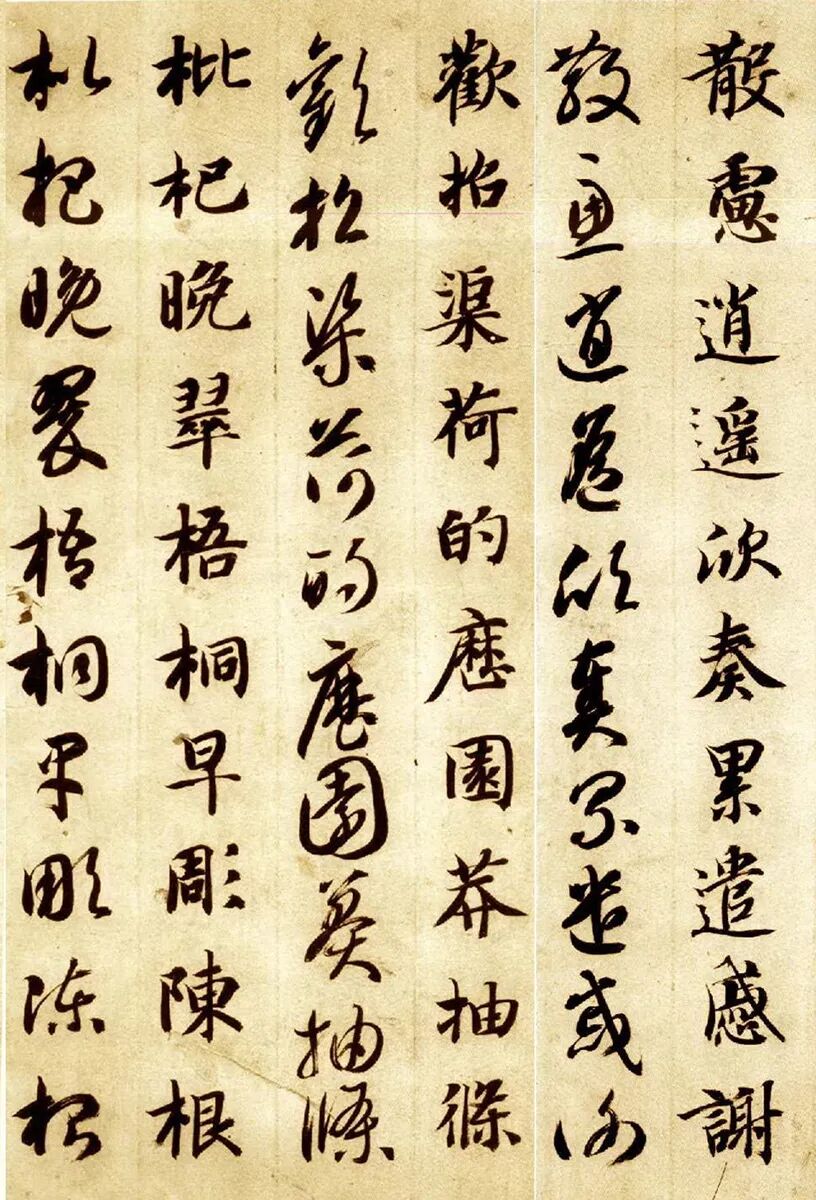 散慮逍遙欣奏累遣慼謝
散慮逍遙欣奏累遣慼謝
歡招渠荷的歷園莽抽條
歡招渠荷的歷園莽抽條
枇杷晚翠梧桐早彫陳根
枇杷晚翠梧桐早彫陳根